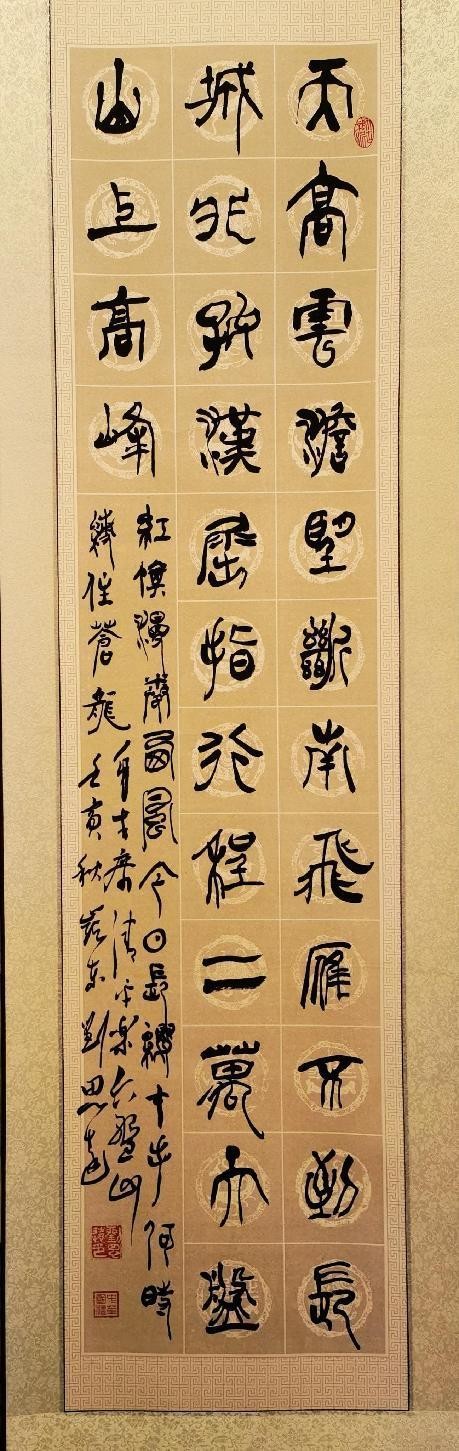 天高雲澹望斷南飛雁不到長
城非好漢屈指行程二萬六盤
山上高峰
紅旗漫卷西風今日長纓在手何時
縛住蒼龍
毛主席清平樂六盤山
壬寅秋劉思